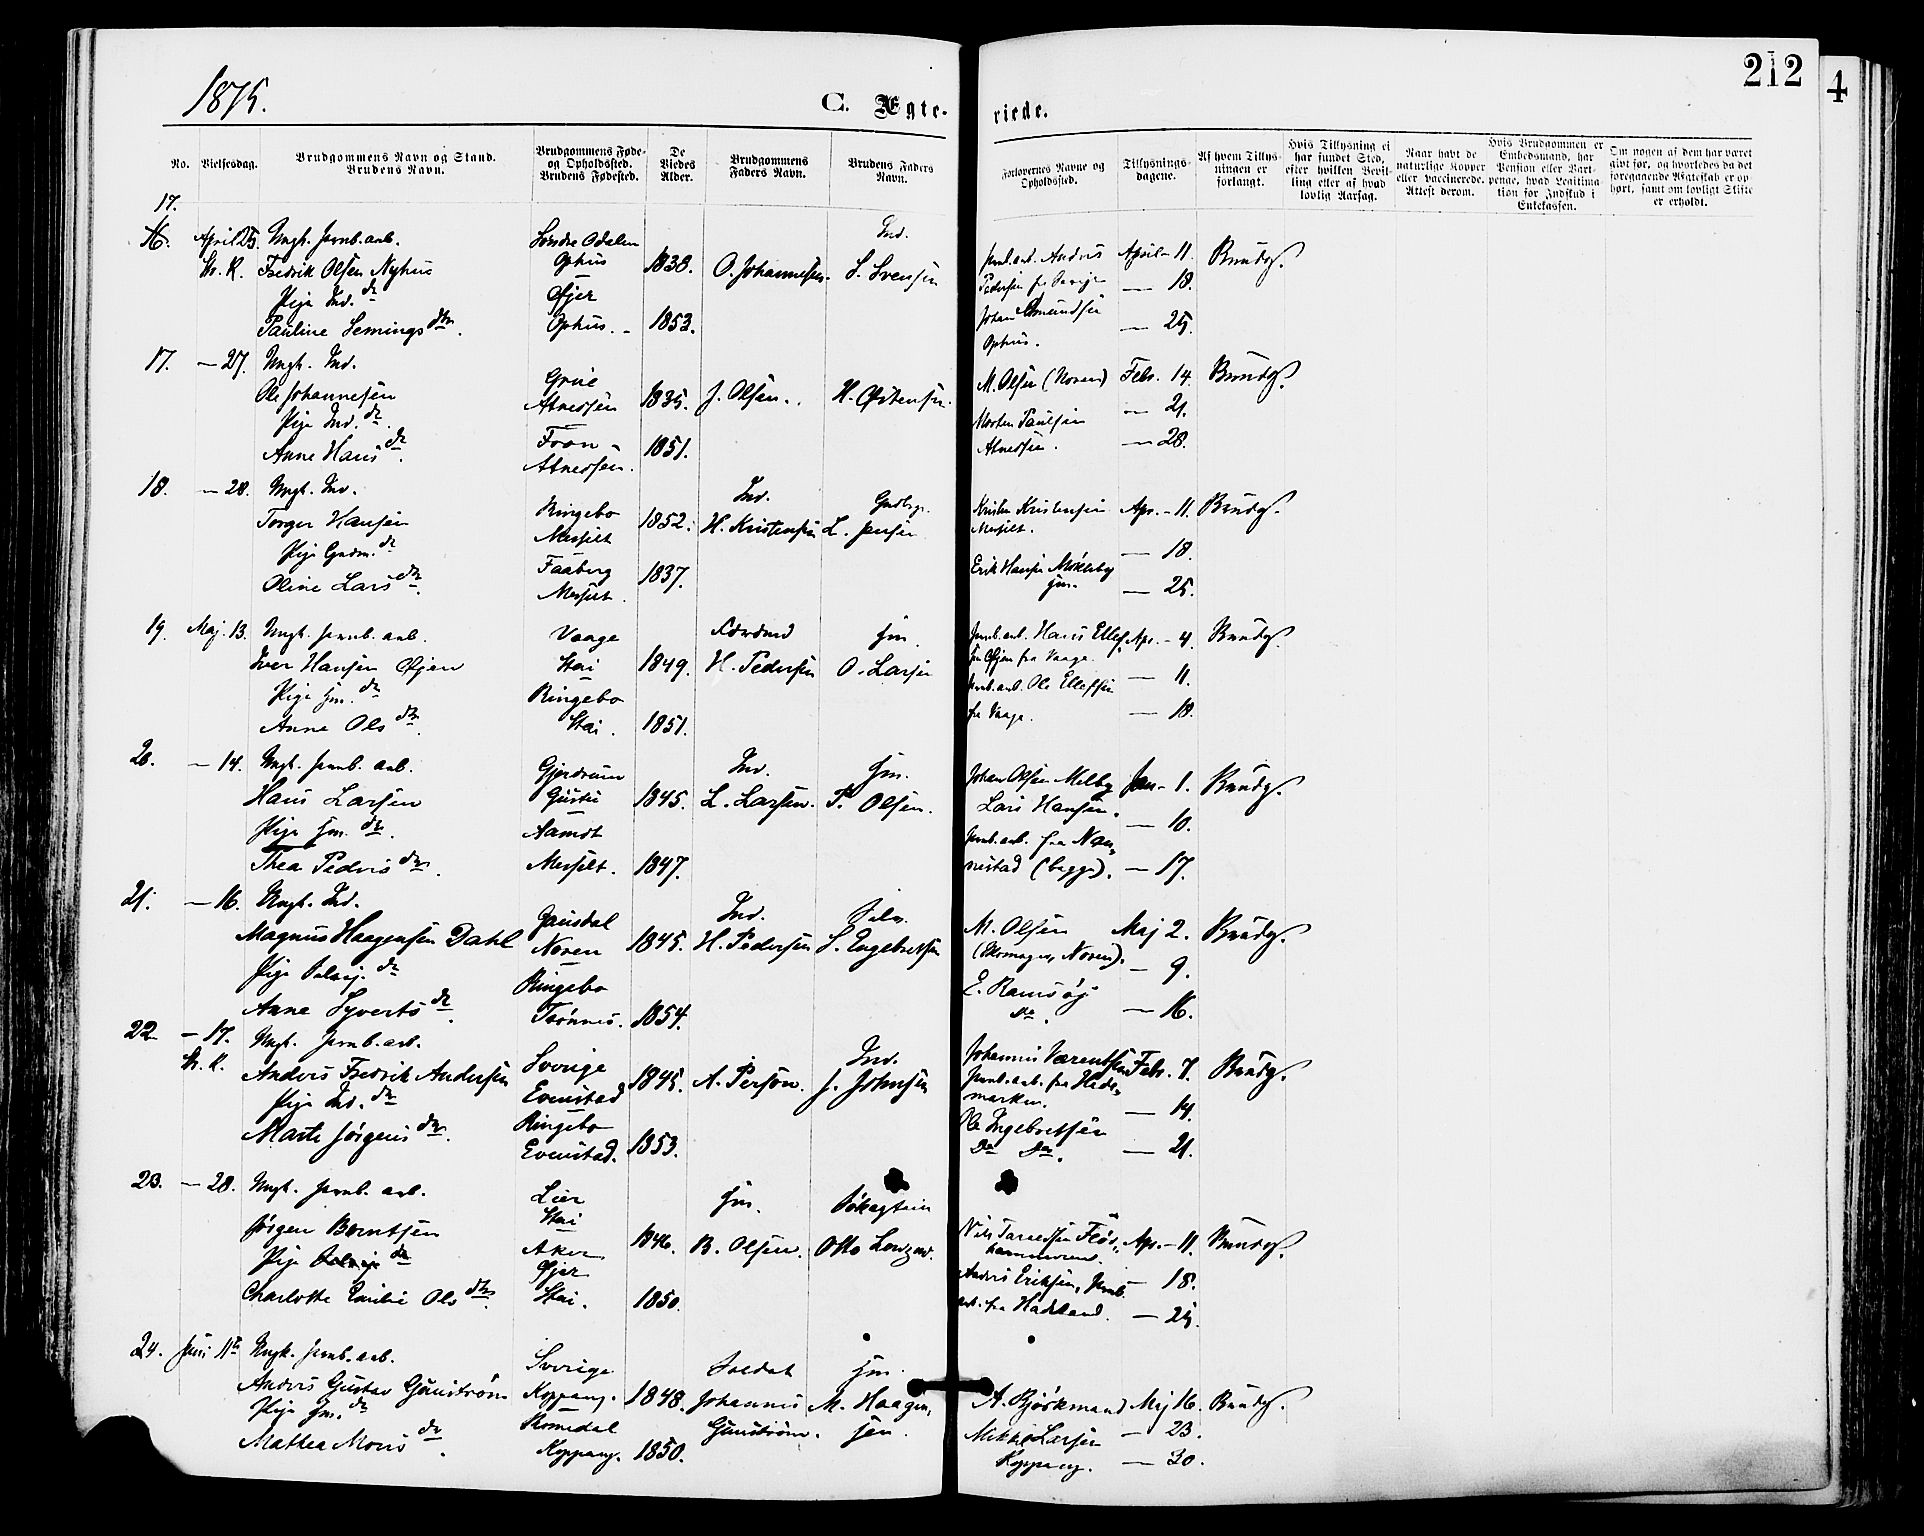 1875.
C. Ægte-
viede.
212
4
No.
Vielsesdag.
Brudgommens Navn og Stand.
Brudens Navn.
Brudgommens Føde-
og Opholdssted.
Brudens Fødested.
De
Viedes
Alder.
Brudgommens
Faders Navn.
Brudens Faders
Navn.
Forlovernes Navne og
Opholdssted.
Tillysnings-
dagene.
Af hvem Tillys-
ningen er
forlangt.
Hvis Tillysning ei
har fundet Sted,
efter hvilken Bevil-
ling eller af hvad
lovlig Aarsag.
Naar havt de
naturlige Kopper
eller vaccinerede.
Attest derom.
Hvis Brudgommen er
Embedsmand, har
Pension eller Vart-
penge, hvad Legitima-
tion for Indskud i
Enkekassen.
Om nogen af dem har været
givt før, og hvorledes da det
foregaaende Ægteskab er op-
hørt, samt om lovligt Skifte
er erholdt.
17.
16. April 25. Ungk. Jernb. arb.
St. K. Fredrik Olsen Nyhus
Pige Ind. dr
Pauline Lemings dtr.
Søndre Odalen
Ophus
Øjer
Ophus.
1838.
1853.
O. Johannesen.
Ind.
L. Svensen
Jernb. arb. Andres
Pedersen fr Sverige
Johan Amundsen
Ophus.
April - 11.
— 18.
— 25.
Brudg.
17. — 27. Ungk. Ind.
Ole Johannesen
Pige Ind. dr.
Anne Hans dr.
Grue
Atnessøen
Fron -
Atnessøen.
1835.
1851.
J. Olsen.
H. Østensen.
M. Olsen (Noren)
Morten Paulsen
Atnessøen.
Febr. 14.
— 21.
— 28.
Brudg.
18. — 28. Ungk. Ind.
Torger Hansen
Pige Gaardm. dr
Oline Lars dtr.
Ringebo
Messelt
Faaberg
Messelt.
1852.
1837.
Ind.
H. Kristensen
L. Jensen
Kristen Kristensen
Messelt.
Erik Hansen Mökleby
Apr. - 11.
— 18.
— 25.
Brudg.
19. Maj. 13. Ungk. Jernb. arb.
Iver Hansen Øjen
Pige Hm. dr
Anne Ols dtr.
Vaage
Stai
Ringebo
Stai.
1849.
1851.
H. Pedersen
Hm
O. Larsen
Jernb. arb. Hans Ellef-
sen Øjen fra Vaage.
Jernb. arb. Ole Ellefsen
fra Vaage.
Apr. - 4.
— 11.
— 18.
Brudg.
20. — 14. Ungk. Jernb. arb.
Hans Larsen
Pige Hm. dtr.
Thea Peders dtr.
Gjerdrum
Gustu
Aamot
Messelt.
1845.
1847.
Ind.
L. Larsen.
Hm.
P. Olsen.
Johan Olsen Melby
Lars Hansen.
Jernb. arb. fra Nan-
nestad (begge).
Jan - 1.
— 10.
— 17.
Brudg.
21. — 16. Ungk. Ind.
Magnus Haagensen Dahl
Pige Selvej. dr
Anne Syverts dr.
Gausdal
Noren
Ringebo
Trönnes.
1845.
1854.
Ind.
H. Pedersen
Selv.
S. Engebretsen
M. Olsen
(Skomager, Noren).
E. Ramsöy
Do.
Maj 2.
— 9.
— 16.
Brudg.
22 — 17. Ungk. Jernb. arb.
St. K. Andres Fredrik Andersen
Pige Ind. dtr
Marte Jörgens dtr.
Sverige
Evenstad
Ringebo
Evenstad.
1845.
1853.
A. Person.
Ind.
J. Johnsen
Johannes Værentsen
Jernb. arb. fra Hede-
marken.
Ole Ingebretsen
Do Do.
Febr. 7.
— 14.
— 21.
Brudg.
23. — 28. Ungk. Jernb. arb.
Jörgen Berntsen
Pige Selvej. dr
Charlotte Emilie Ols dtr.
Lier
Stai
Aker
Øjer
Stai.
1846.
1850.
Hm.
B. Olsen.
Nils Tarvedsen Flös-
Andres Eriksen, Jernb.
arb. fra Hadeland.
Apr. - 11.
— 18.
— 25.
Brudg.
24. Juni 11te Ungk. Jernb. arb.
Andres Gustav Gunström
Pige Hm. dr
Mathea Mons dr.
Sverige
Koppang.
Romedal
Koppang.
1848.
1850.
Soldat
Johannes
Gunström.
Hm.
M. Haagen-
sen.
A. Bjørkmand
Mikkel Larsen
Koppang.
Maj 16.
— 23.
— 30.
Brudg.